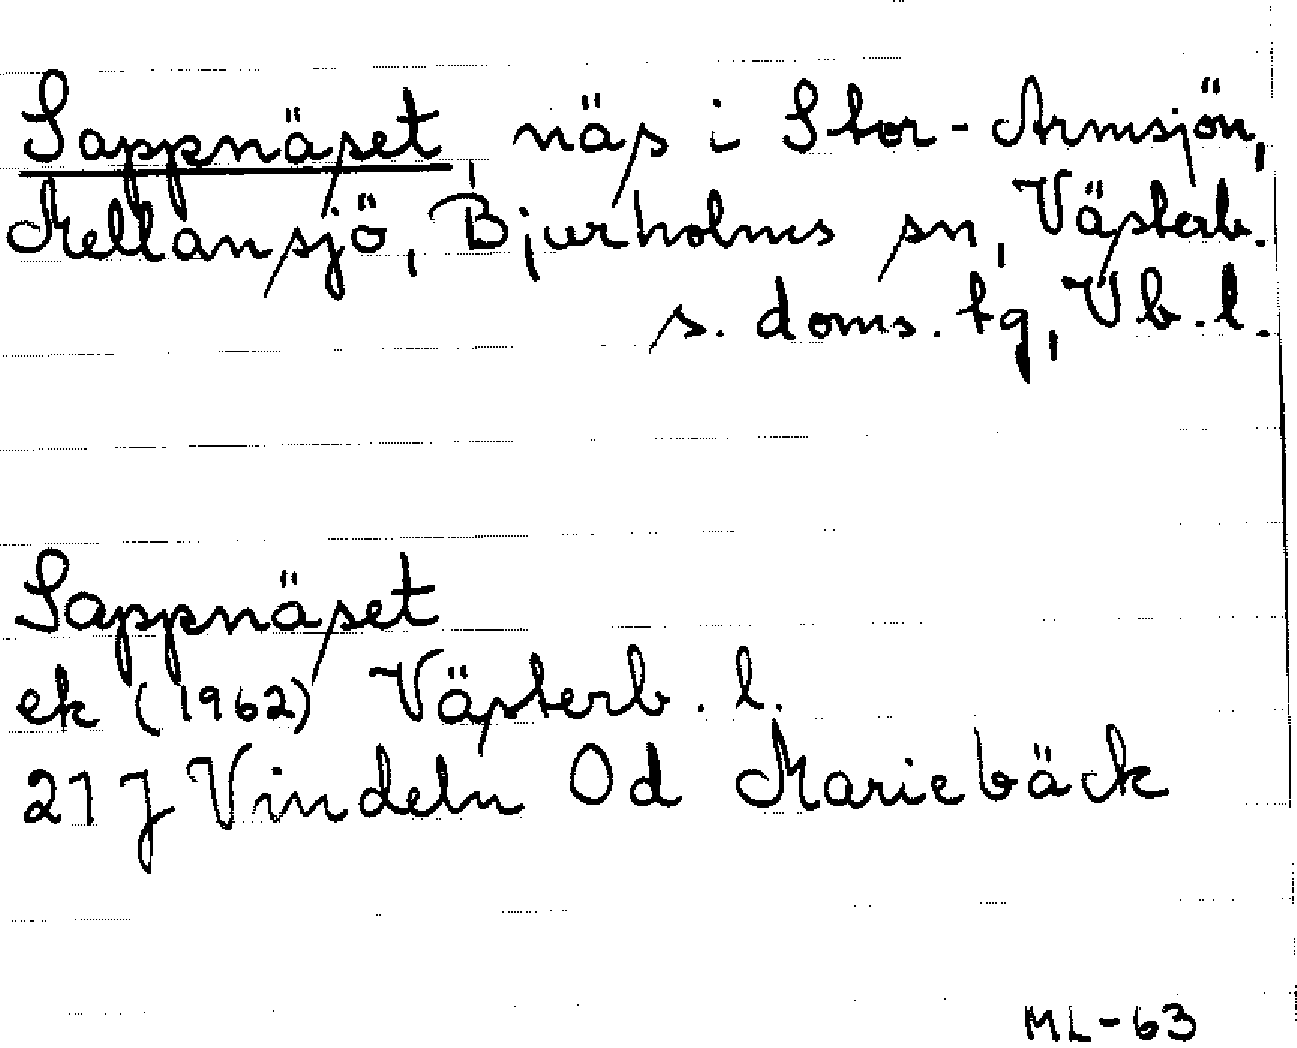 Sappnäset, näs i Stor-Armsjön,
Mellansjö, Bjurholms sn, Västerb.
s. doms. tg, Vb. l.
Sappnäset
ek (1962) Västerb. l.
21 J Vindeln 0d Mariebäck
ML-63